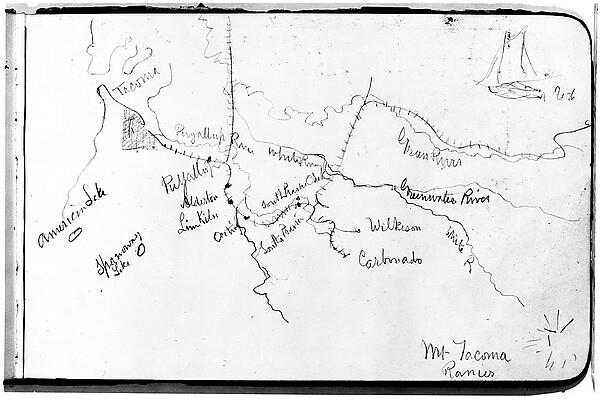 Tacoma
Puyallup River
White River
Green River
Puyallup
Alderton
South Prairie Creek
Greenwater River
American Lake
Orting
South Prairie
Wilkeson
White R
Spanaway
Lake
Carbonado
Mt Tacoma